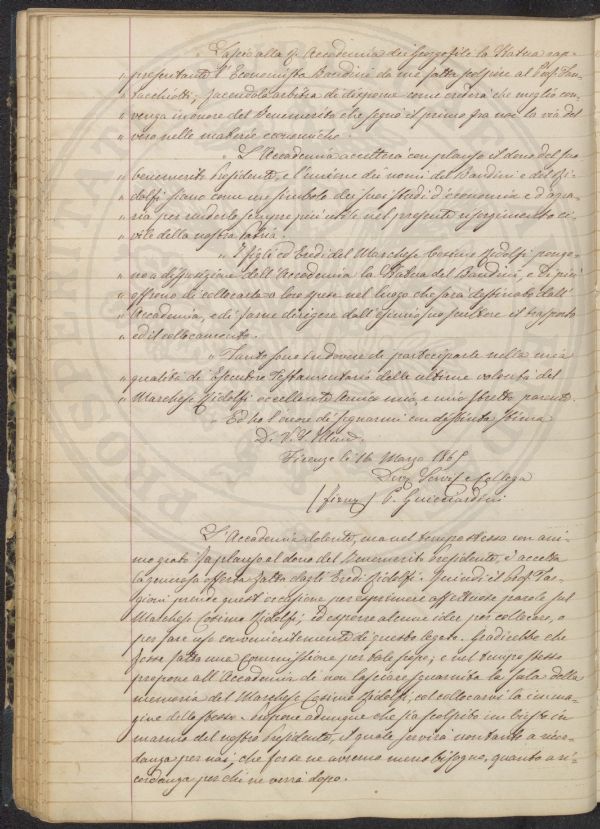 „ Lascio alla R. Accademia dei Georgofili la Statua rap-
„ presentante l'Economista Bandini da me fatta scolpire al Prof. Fan-
„ tacchiotti; facendola arbitra di disporne come crederà che meglio con-
„ venga in onore del Benemerito che segnò il primo fra noi la via del
„ vero nelle materie economiche.
„ L'Accademia accetterà con plauso il dono del suo
„ benemerito Presidente, e l'unione dei nomi del Bandini e del Ri-
„ dolfi siano come un simbolo dei suoi studi d'economia e d'agra-
„ ria per renderlo sempre più utile nel presente risorgimento ci-
„ vile della nostra patria.
„ I figli ed Eredi del Marchese Cosimo Ridolfi pongo-
„ no a disposizione dell'Accademia la Statua del Bandini, e di più
„ offrono di collocarla a loro spese nel luogo che sarà destinato dall'
„ Accademia, e di farne dirigere dall'esimio suo scultore il trasporto
„ ed il collocamento.
„ Tanto sono in dovere di partecipare nella mia
„ qualità di Esecutore Testamentario delle ultime volontà del
„ Marchese Ridolfi eccellente Amico mio, e mio stretto parente.
„ Ed ho l'onore di segnarmi con distinta stima
Di V. S. Illma.
Firenze li 16 Marzo 1865
Devo. Servo. e Collega
(firm.) P. Guicciardini
L'Accademia dolente, ma nel tempo stesso con ani-
mo grato fa plauso al dono del Benemerito Presidente, e accetta
la generosa offerta fatta dagli Eredi Ridolfi. Quindi il Prof. Tar-
gioni prende quest'occasione per esprimere affettuose parole sul
Marchese Cosimo Ridolfi; ed esporre alcune idee per collocare, o
per fare uso convenientemente di questo legato. Gradirebbe che
fosse fatta una Commissione per tale scopo; e nel tempo stesso
propone all'Accademia di non lasciare sguarnita la sala della
memoria del Marchese Cosimo Ridolfi, col collocarvi la imma-
gine dello stesso. Propone adunque che sia scolpito un busto in
marmo del nostro Presidente, il quale servirà non tanto a ricor-
danza per noi, che forse ne avremo meno bisogno, quanto a ri-
cordanza per chi ne verrà dopo.